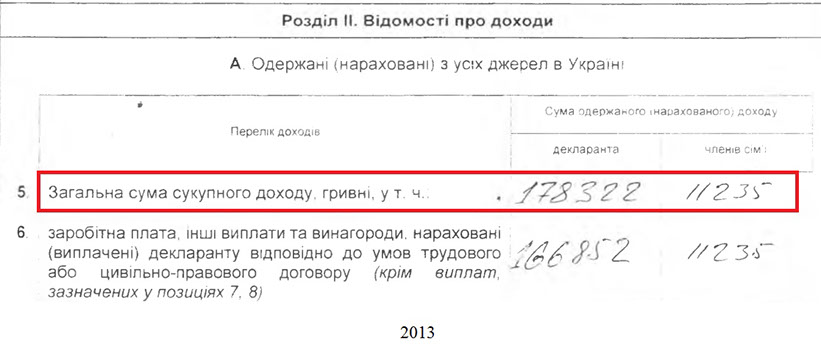 Розділ II. Відомості про доходи
А. Одержані (нараховані) з усіх джерел в Україні
Перелік доходів
Сума одержаного (нарахованого) доходу
декларанта
членів сім'ї
5. Загальна сума сукупного доходу, гривні, у т. ч.: 178322 11235
6. заробітна плата, інші виплати та винагороди, нараховані
(виплачені) декларанту відповідно до умов трудового
або цивільно-правового договору (крім виплат,
зазначених у позиціях 7, 8)
166852 11235
2013